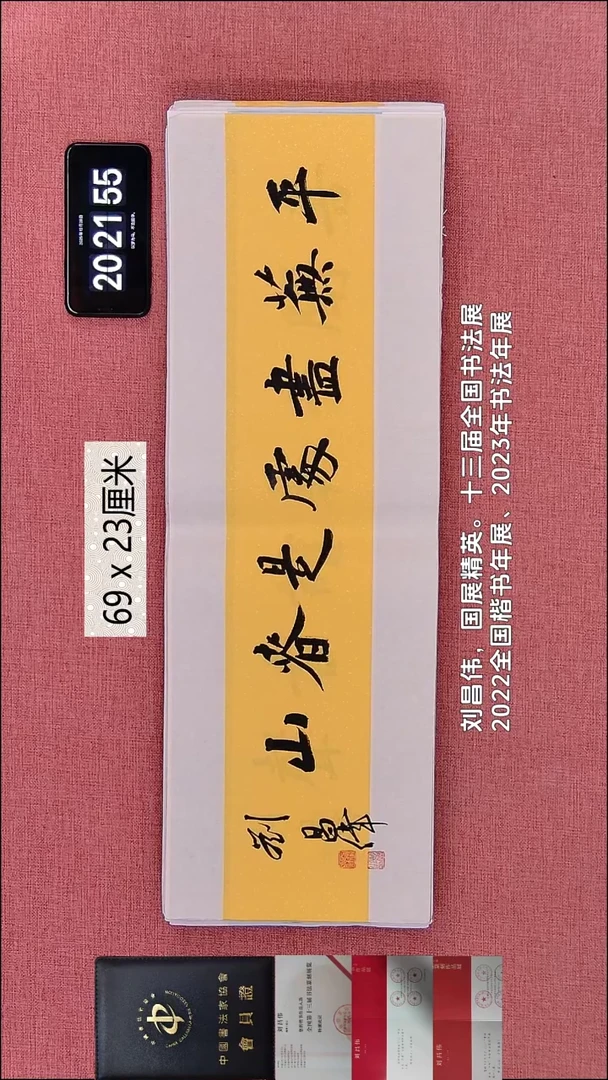 20 21 55
69 x 23厘米
平蕪盡處是春山
劉昌偉
刘昌伟，国展精英。十三届全国书法展
2022全国楷书年展、2023年书法年展
中國書法家協會
會員證